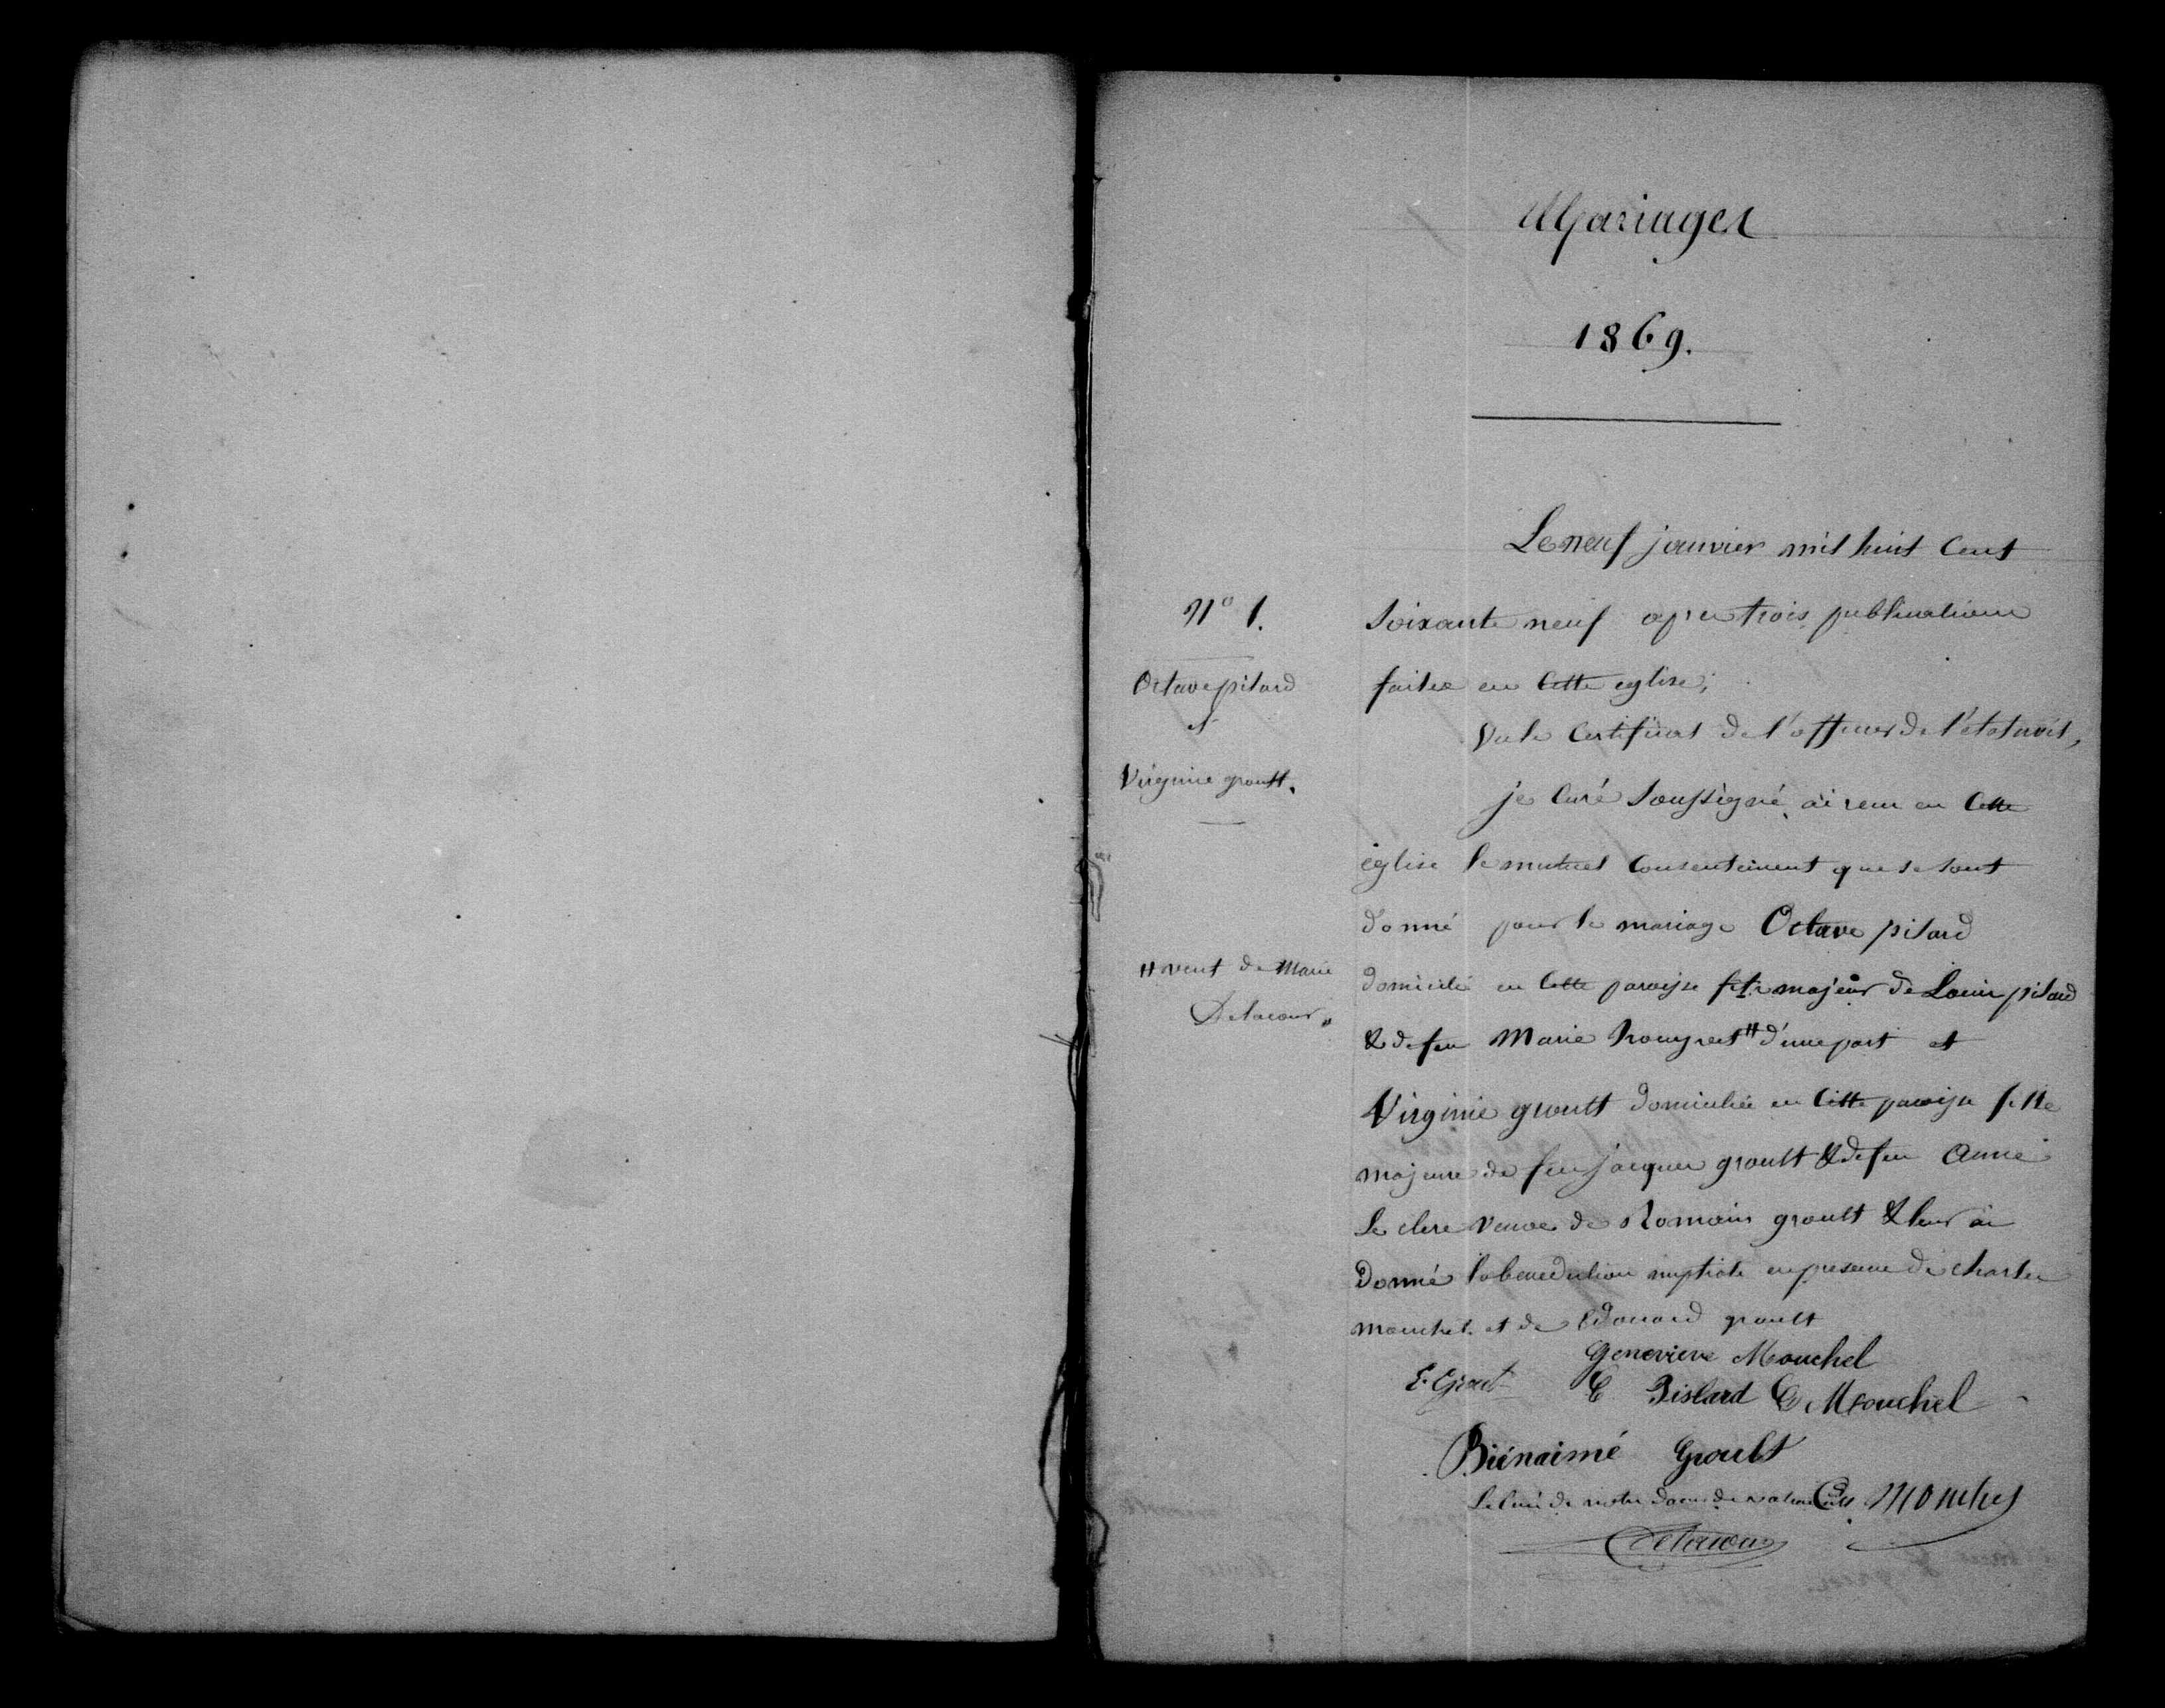 Mariages
1869.
Le neuf janvier mil huit cent
N° 1.
soixante neuf apres trois publications
Octave pitard
et
Virginie groult.
faites en cette eglise;
Vu le certificat de l'officier de l'etat civil,
je curé soussigné ai recu en cette
église le mutuel consentement que se sont
donné pour le mariage Octave pitard
# veuf de Marie
Delacour "
domicilié en cette paroisse fils majeur de Louis pitard
& de feu Marie # d'une part et
Virginie groult domiciliée en cette paroisse fille
majeure de feu jacques groult & de feu Anne
Le clerc veuve de Romain groult & leur ai
donné la benediction nuptiale en presence de charles
mouchel et de Edouard groult
Genevieve Mouchel
E. Grout C Bistard C Mouchel
Biénaimé Groult
Le curé de notre dame de
Delacour